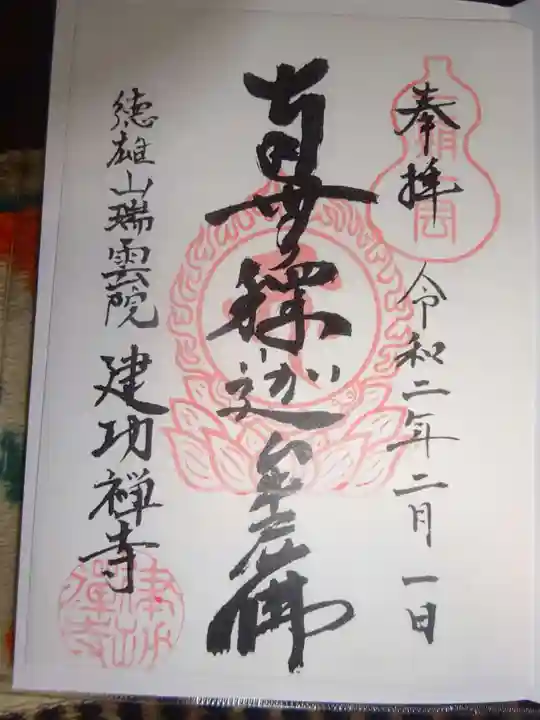 奉拝
令和二年二月一日
南無釋迦牟尼佛
徳雄山瑞雲院 建功禅寺